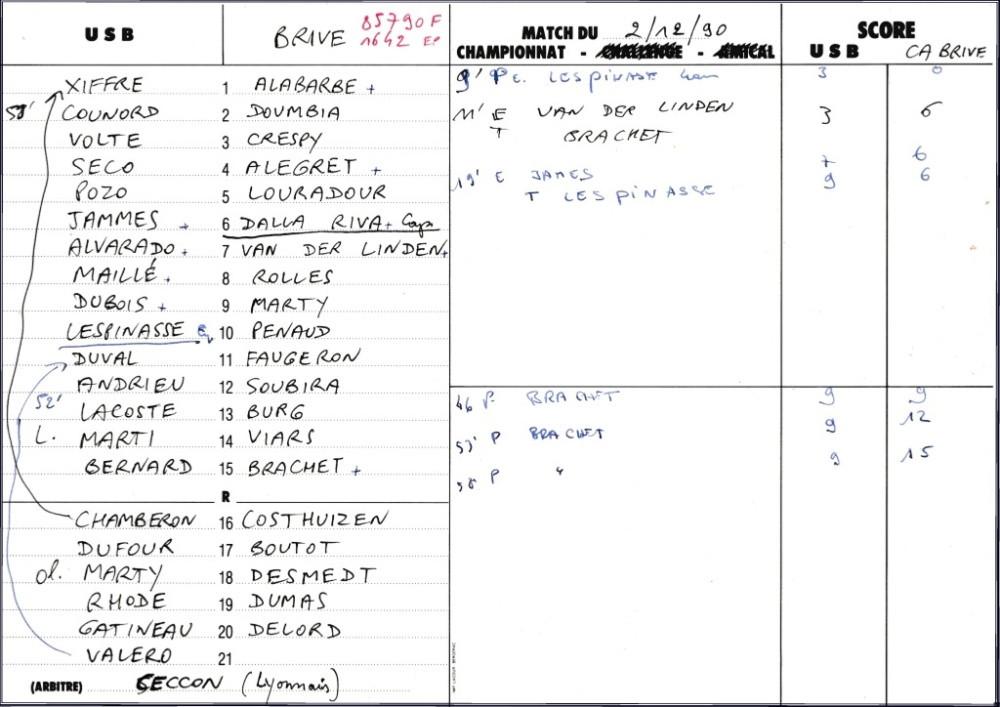 USB BRIVE 85790 F
1642 EP
XIFFRE 1 ALABARBE +
53' COUNORD 2 DOUMBIA
VOLTE 3 CRESPY
SECO 4 ALEGRET +
POZO 5 LOURADOUR
JAMMES + 6 DALLA RIVA + Cap
ALVARADO + 7 VAN DER LINDEN +
MAILLÉ + 8 ROLLES
DUBOIS + 9 MARTY
LESPINASSE 10 PENAUD
DUVAL 11 FAUGERON
ANDRIEU 12 SOUBIRA
52' LACOSTE 13 BURG
L. MARTI 14 VIARS
BERNARD 15 BRACHET +
R
CHAMBERON 16 COSTHUIZEN
DUFOUR 17 BOUTOT
ol. MARTY 18 DESMEDT
RHODE 19 DUMAS
GATINEAU 20 DELORD
VALERO 21
(ARBITRE) SECCON (Lyonnais)
MATCH DU 2/12/90 SCORE
CHAMPIONNAT - CHALLENGE - AMICAL USB CA BRIVE
9' P LESPINASSE 3 0
11' E VAN DER LINDEN 3 6
T BRACHET
7 6
19' E JAMES 9 6
T LESPINASSE
46 P. BRACHET 9 9
53' P BRACHET 9 12
58' P " 9 15